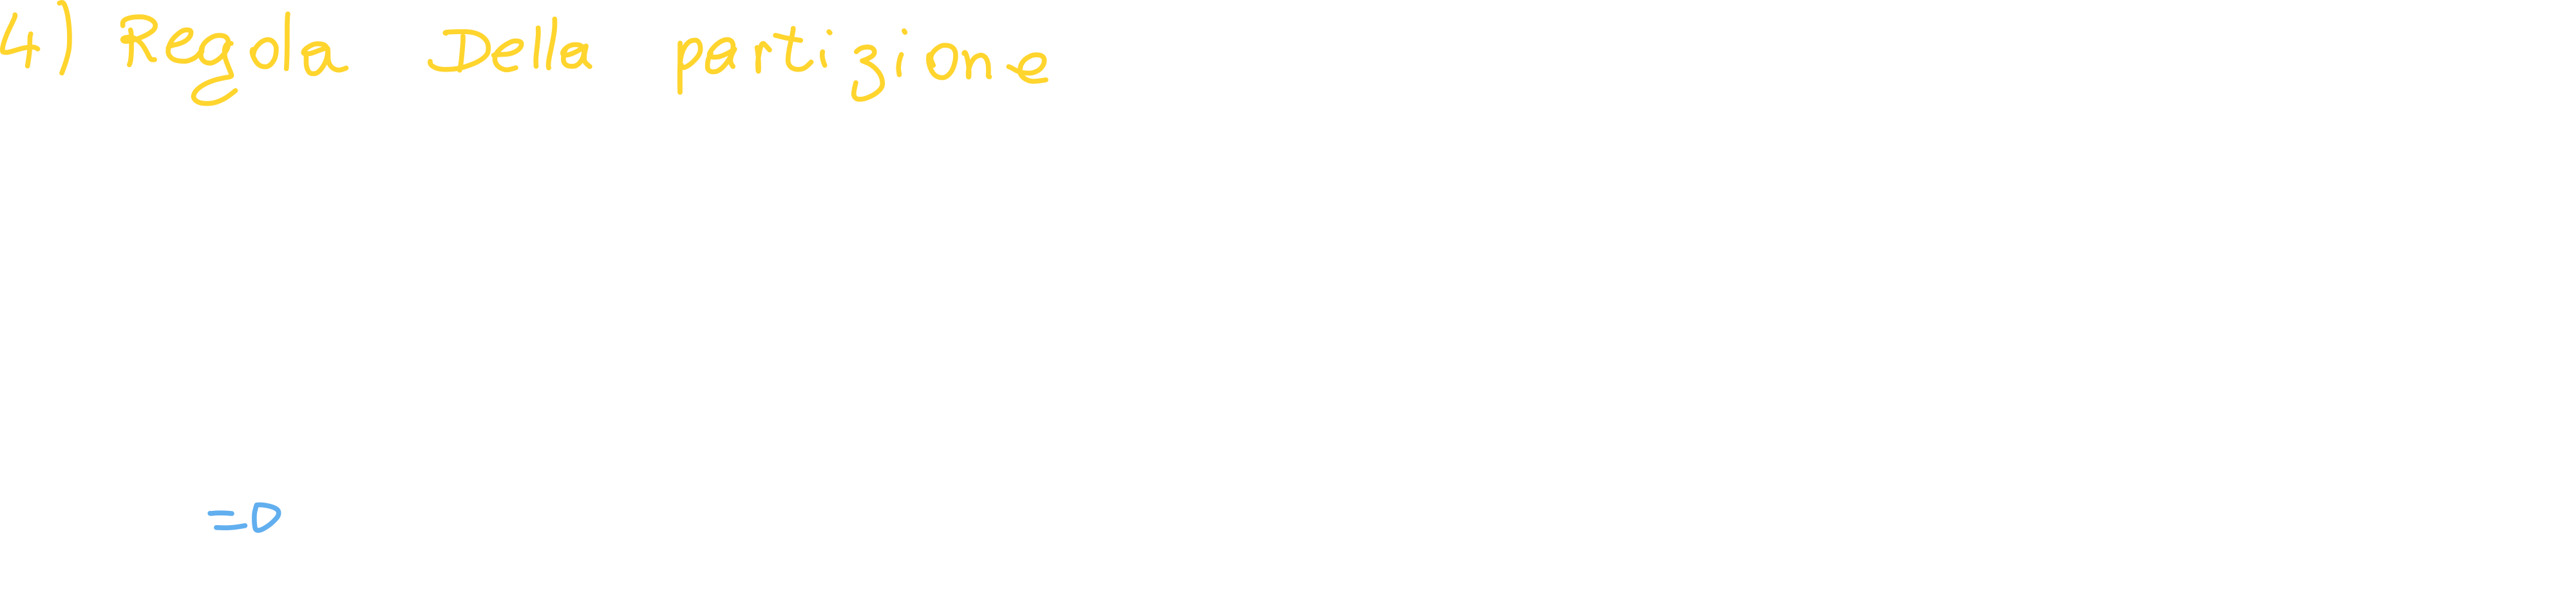 4) Regola Della partizione
=D